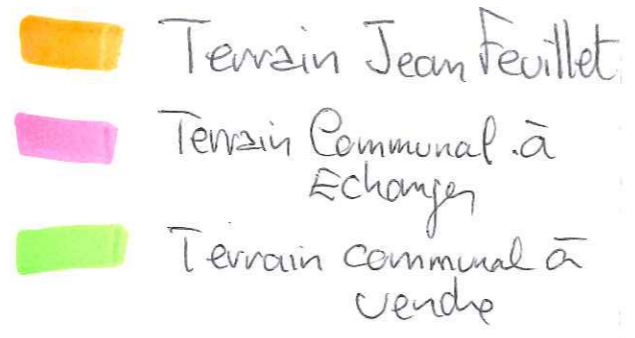 Terrain Jean Feuillet
Terrain Communal à
Echanger
Terrain communal à
vendre